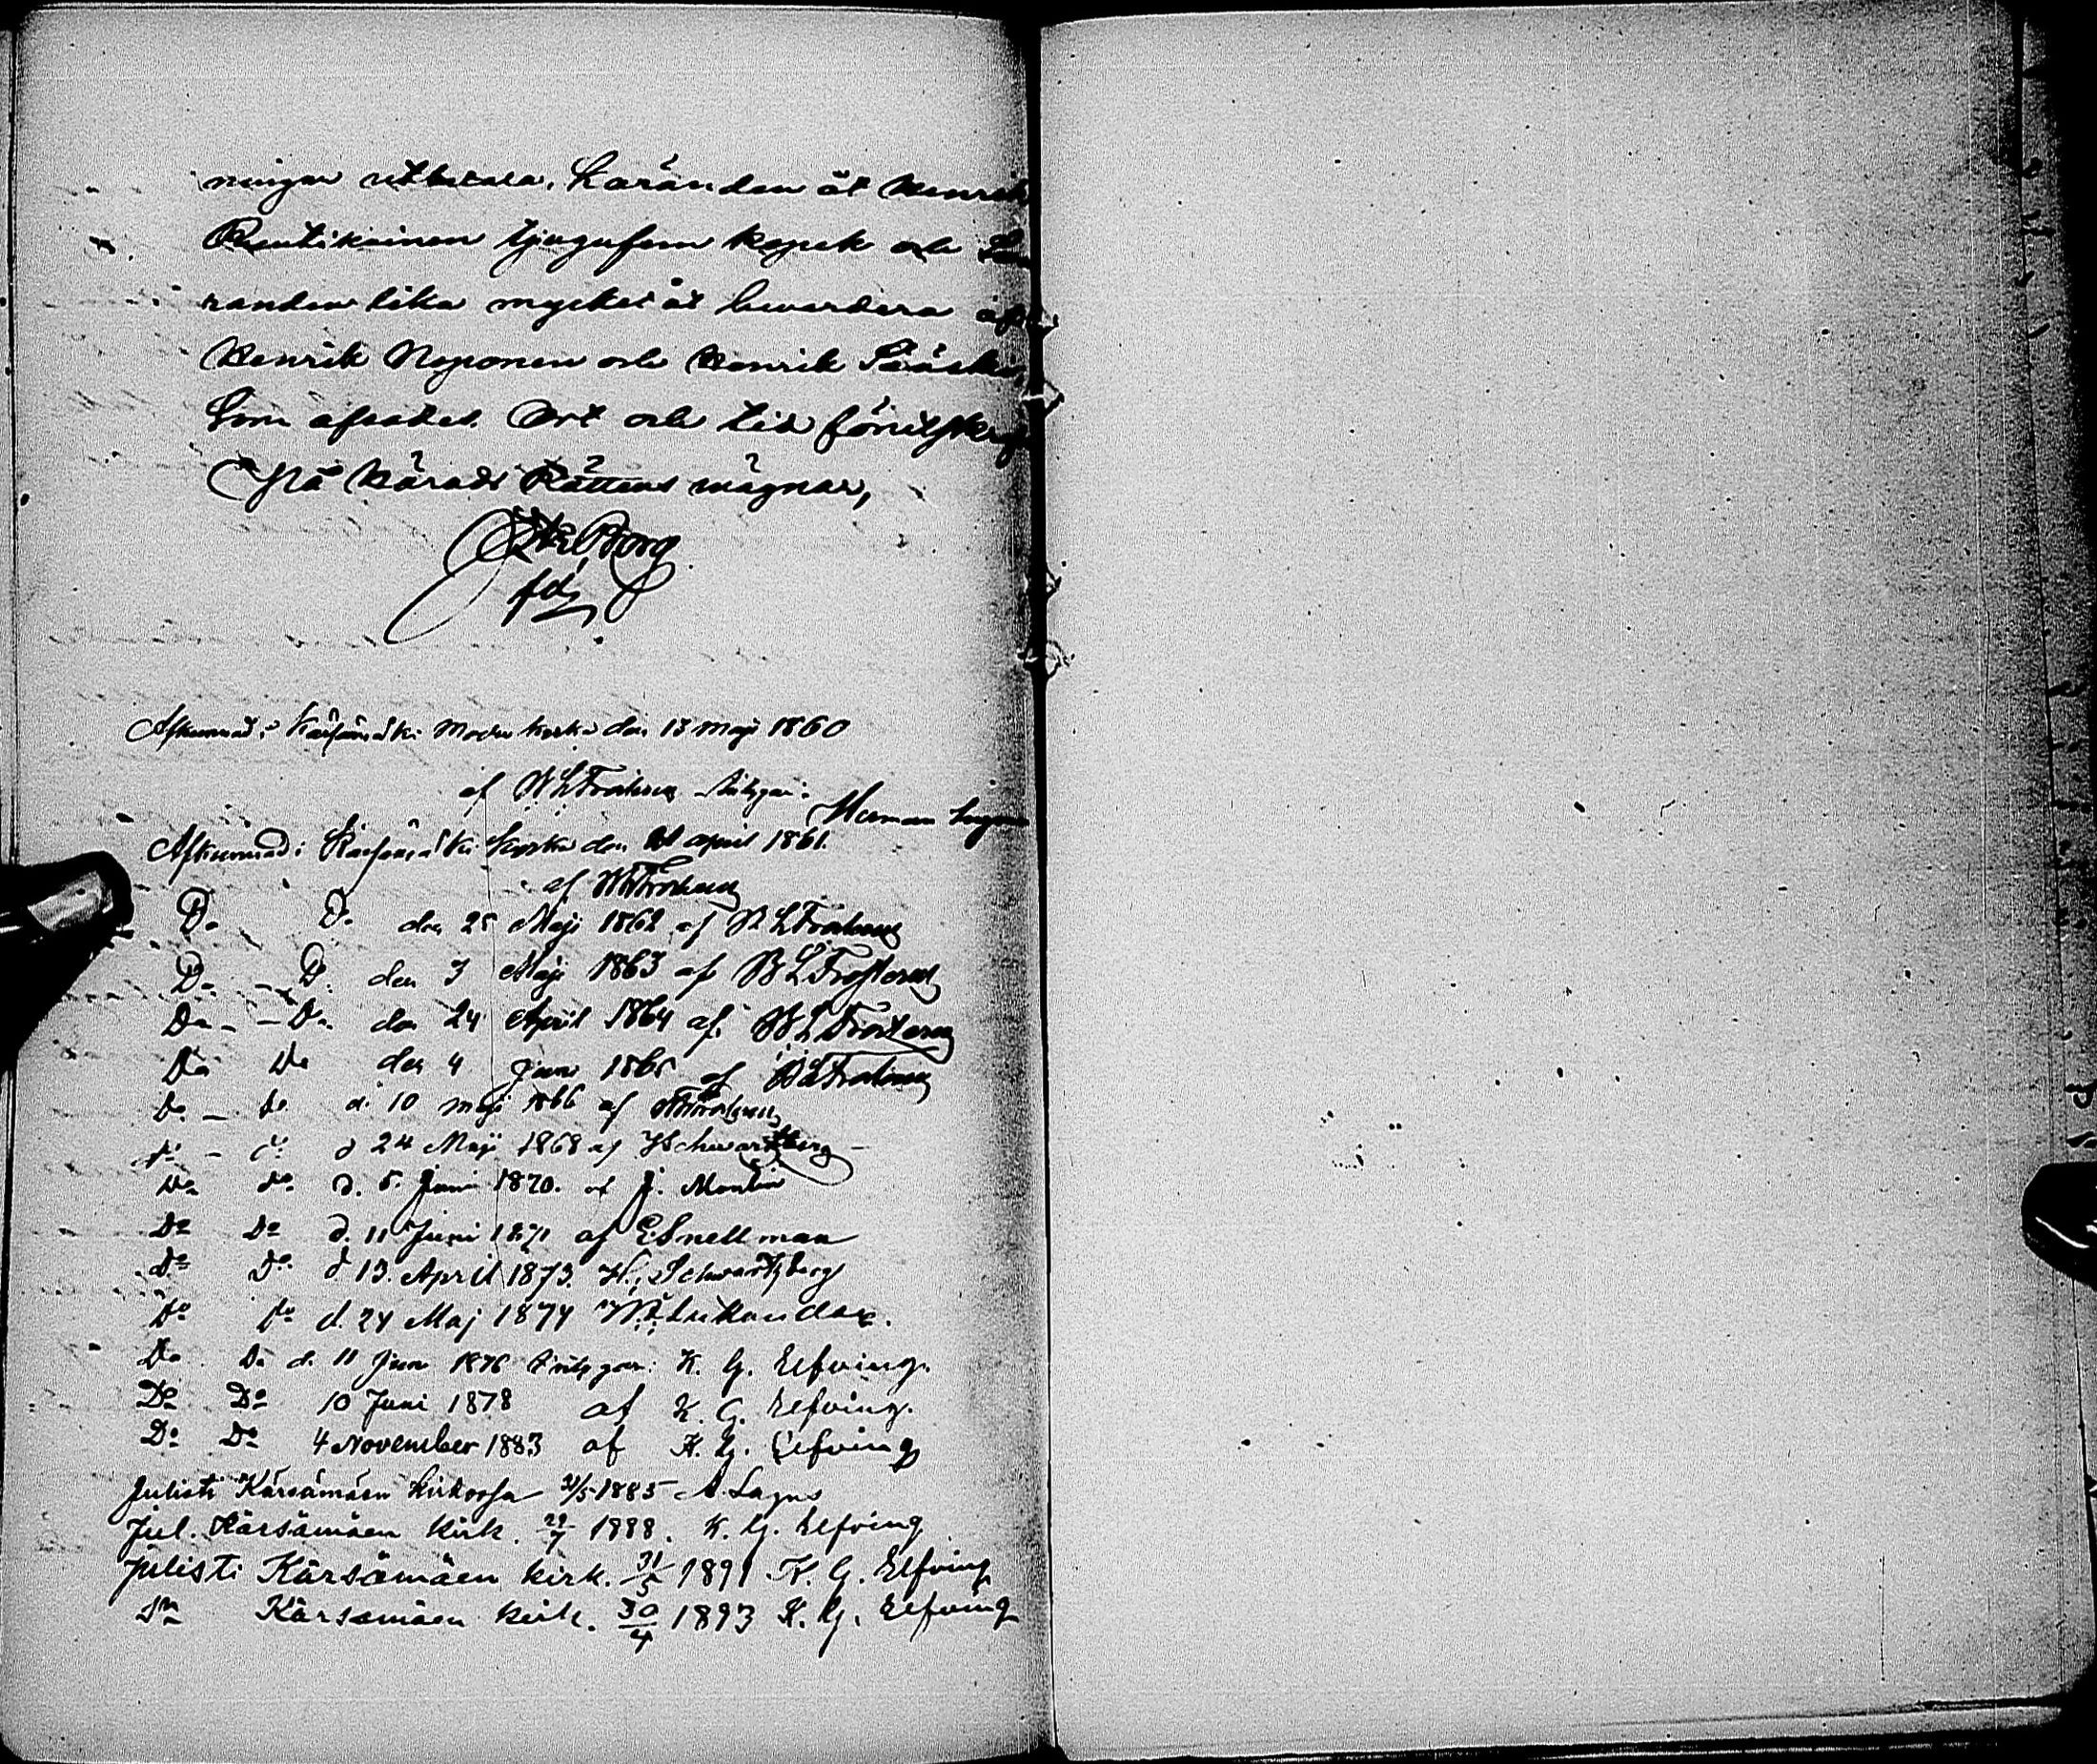 ningar utbetala, Käranden åt Henrik
Pentikäinen tjugufem kopek och Sva
randen lika mycket åt hvardera af
Henrik Noponen och Henrik Sääski,
Som afsades. Ort och tid förutskrefne
På Härads Rättens vägnar,
Borg
Afkunnad i Kärsämäki Moder kyrka den 13 Maji 1860
af W L Frosterus
Herman
Afkunnad i Kärsämäki Kyrka den april 1861.
af W L Frosterus
Do Do den 25 Maji 1862 af W L Frosterus
Do Do den 3 Maji 1863 af W L Frosterus
Do - Do den 24 April 1864 af W L Frosterus
Do Do den 4 Juni 1865 af W L Frosterus
Do - Do d. 10 maji 1866 af W L Frosterus
do - do d 24 Maji 1868 af H Schwartzberg
Do do d. 5. Juni 1870. af J. Montin
Do Do d. 11 Juni 1871 af E Snellman
do do d 13. April 1873. H. Schwartzberg
do do d. 24 Maj 1874
Do Do d. 11 Juni 1876 K. G. Elfving.
Do Do 10 Juni 1878 af K. G. Elfving.
Do Do 4 November 1883 af K. G. Elfving
Julisti Kärsämäen kirkossa 31/5 1885 A. Lagus
Jul. Kärsämäen kirk. 29/7 1888. K. G. Elfving
Julisti Kärsämäen kirk. 31/5 1891 K. G. Elfving
Do Kärsämäen kirk. 30/4 1893 K. G. Elfving